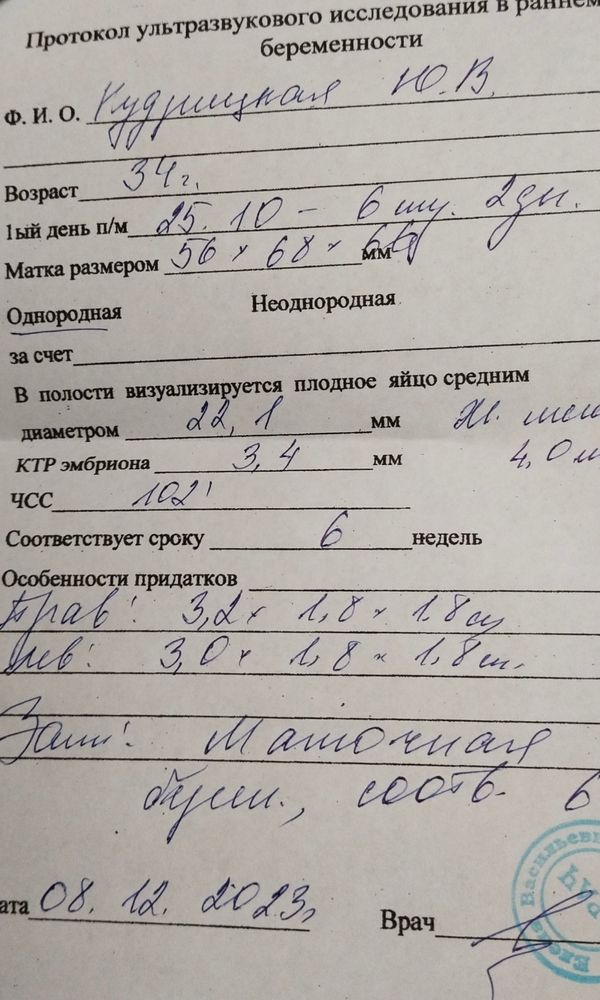 Протокол ультразвукового исследования в раннем
беременности
Ф. И. О. Кудрицкая Ю. В.
Возраст 34 г.
1ый день п/м 25. 10 – 6 2 дн.
Матка размером 56 × 68 × мм
Однородная Неоднородная
за счет
В полости визуализируется плодное яйцо средним
диаметром 22,1 мм Ж.
КТР эмбриона 3,4 мм 4,0
ЧСС 102'
Соответствует сроку 6 недель
Особенности придатков
Прав: 3,2 × 1,8 × 1.8 см
Лев: 3,0 × 1,8 × 1,8 см.
Закл: Маточная
берем., соотв. 6
ата 08. 12. 2023г Врач
Васильевн
Елена